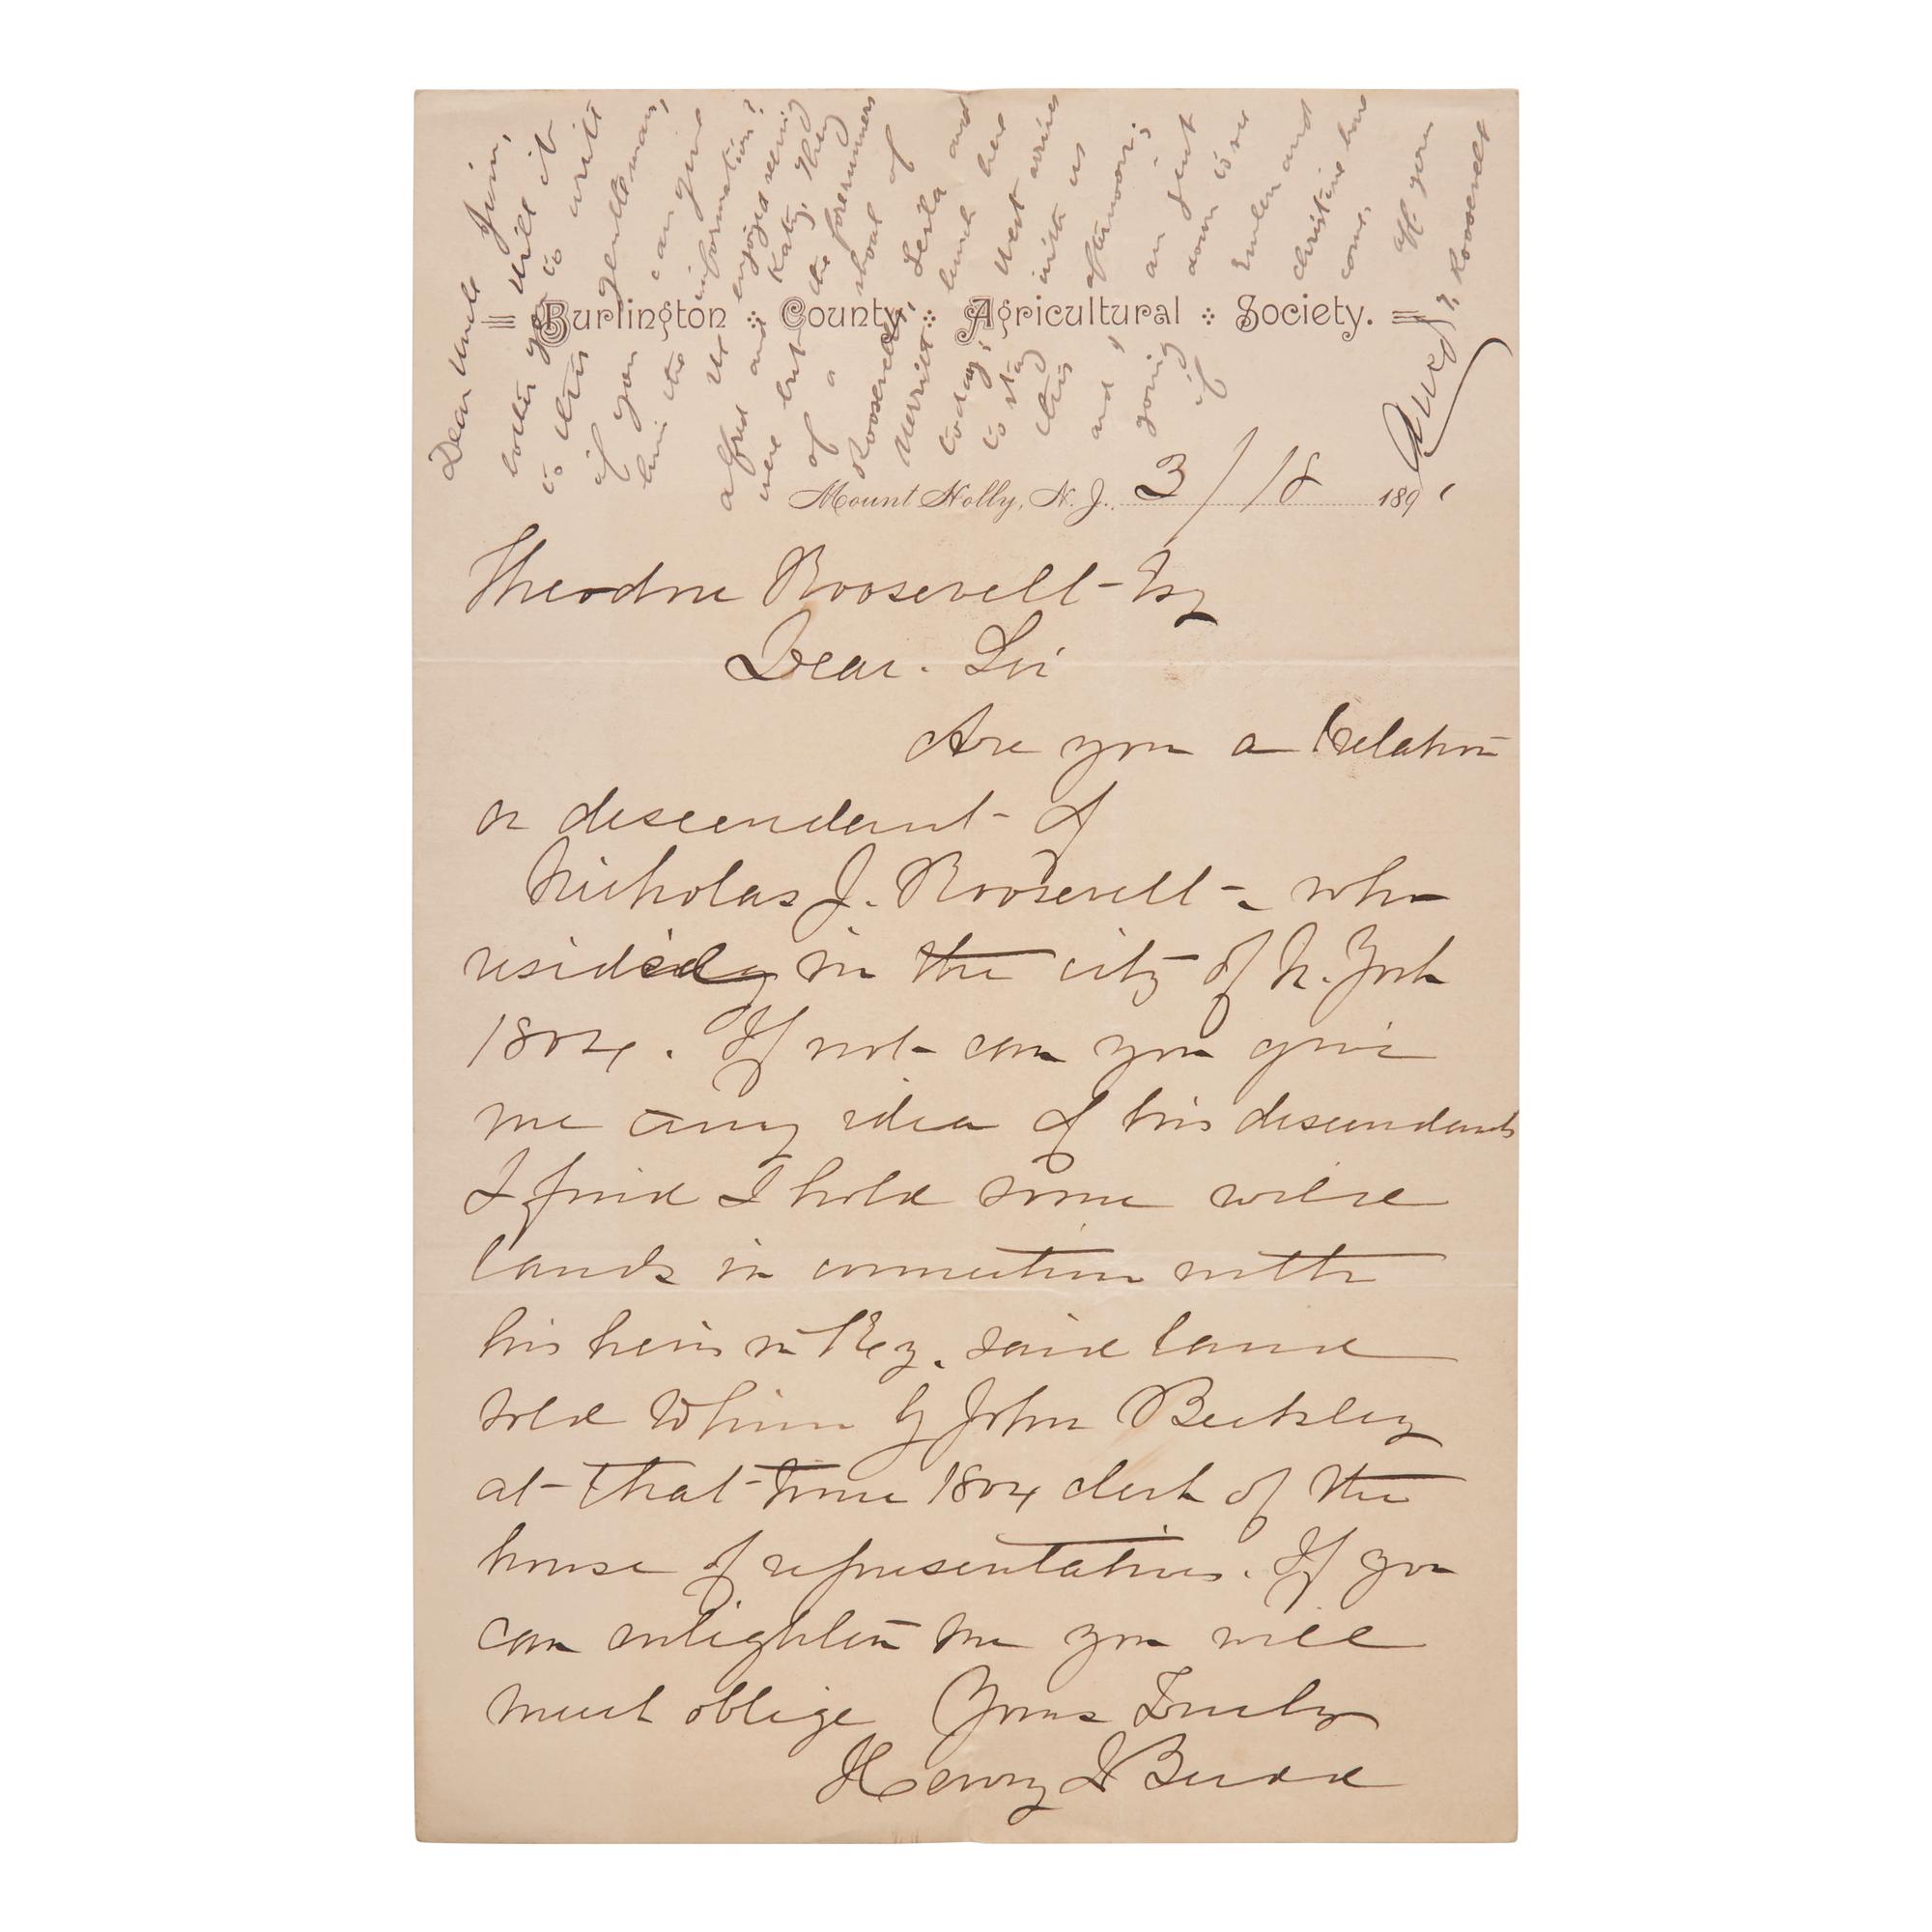 Dear Uncle Jim,
Will it
bother you to write
to this gentleman,
if you can give
him the information?
We enjoyed seeing
Alfred and Katy. They
were but the forerunners
of a shoal of
Roosevelts; Leila and
Merritt lunch here
today; West arrives
to stay with us
this afternoon;
and I am just
going down to see
if Emlen and
Christine have
come.
Aff. your
T. Roosevelt
Burlington County Agricultural Society.
Ansd
Mount Holly, N. J. 3/18 1891
Theodore Roosevelt - Esq
Dear. Sir
Are you a relation
or descendant of
Nicholas J. Roosevelt - who
resided in the city of N. York
1804. If not can you give
me any idea of his descendants
I find I hold some wild
lands in connection with
his heirs in Ky. said land
sold to him by John Beckley
at that time 1804 clerk of the
house of representatives. If you
can enlighten me you will
much oblige Yours Truly
Henry I Budd